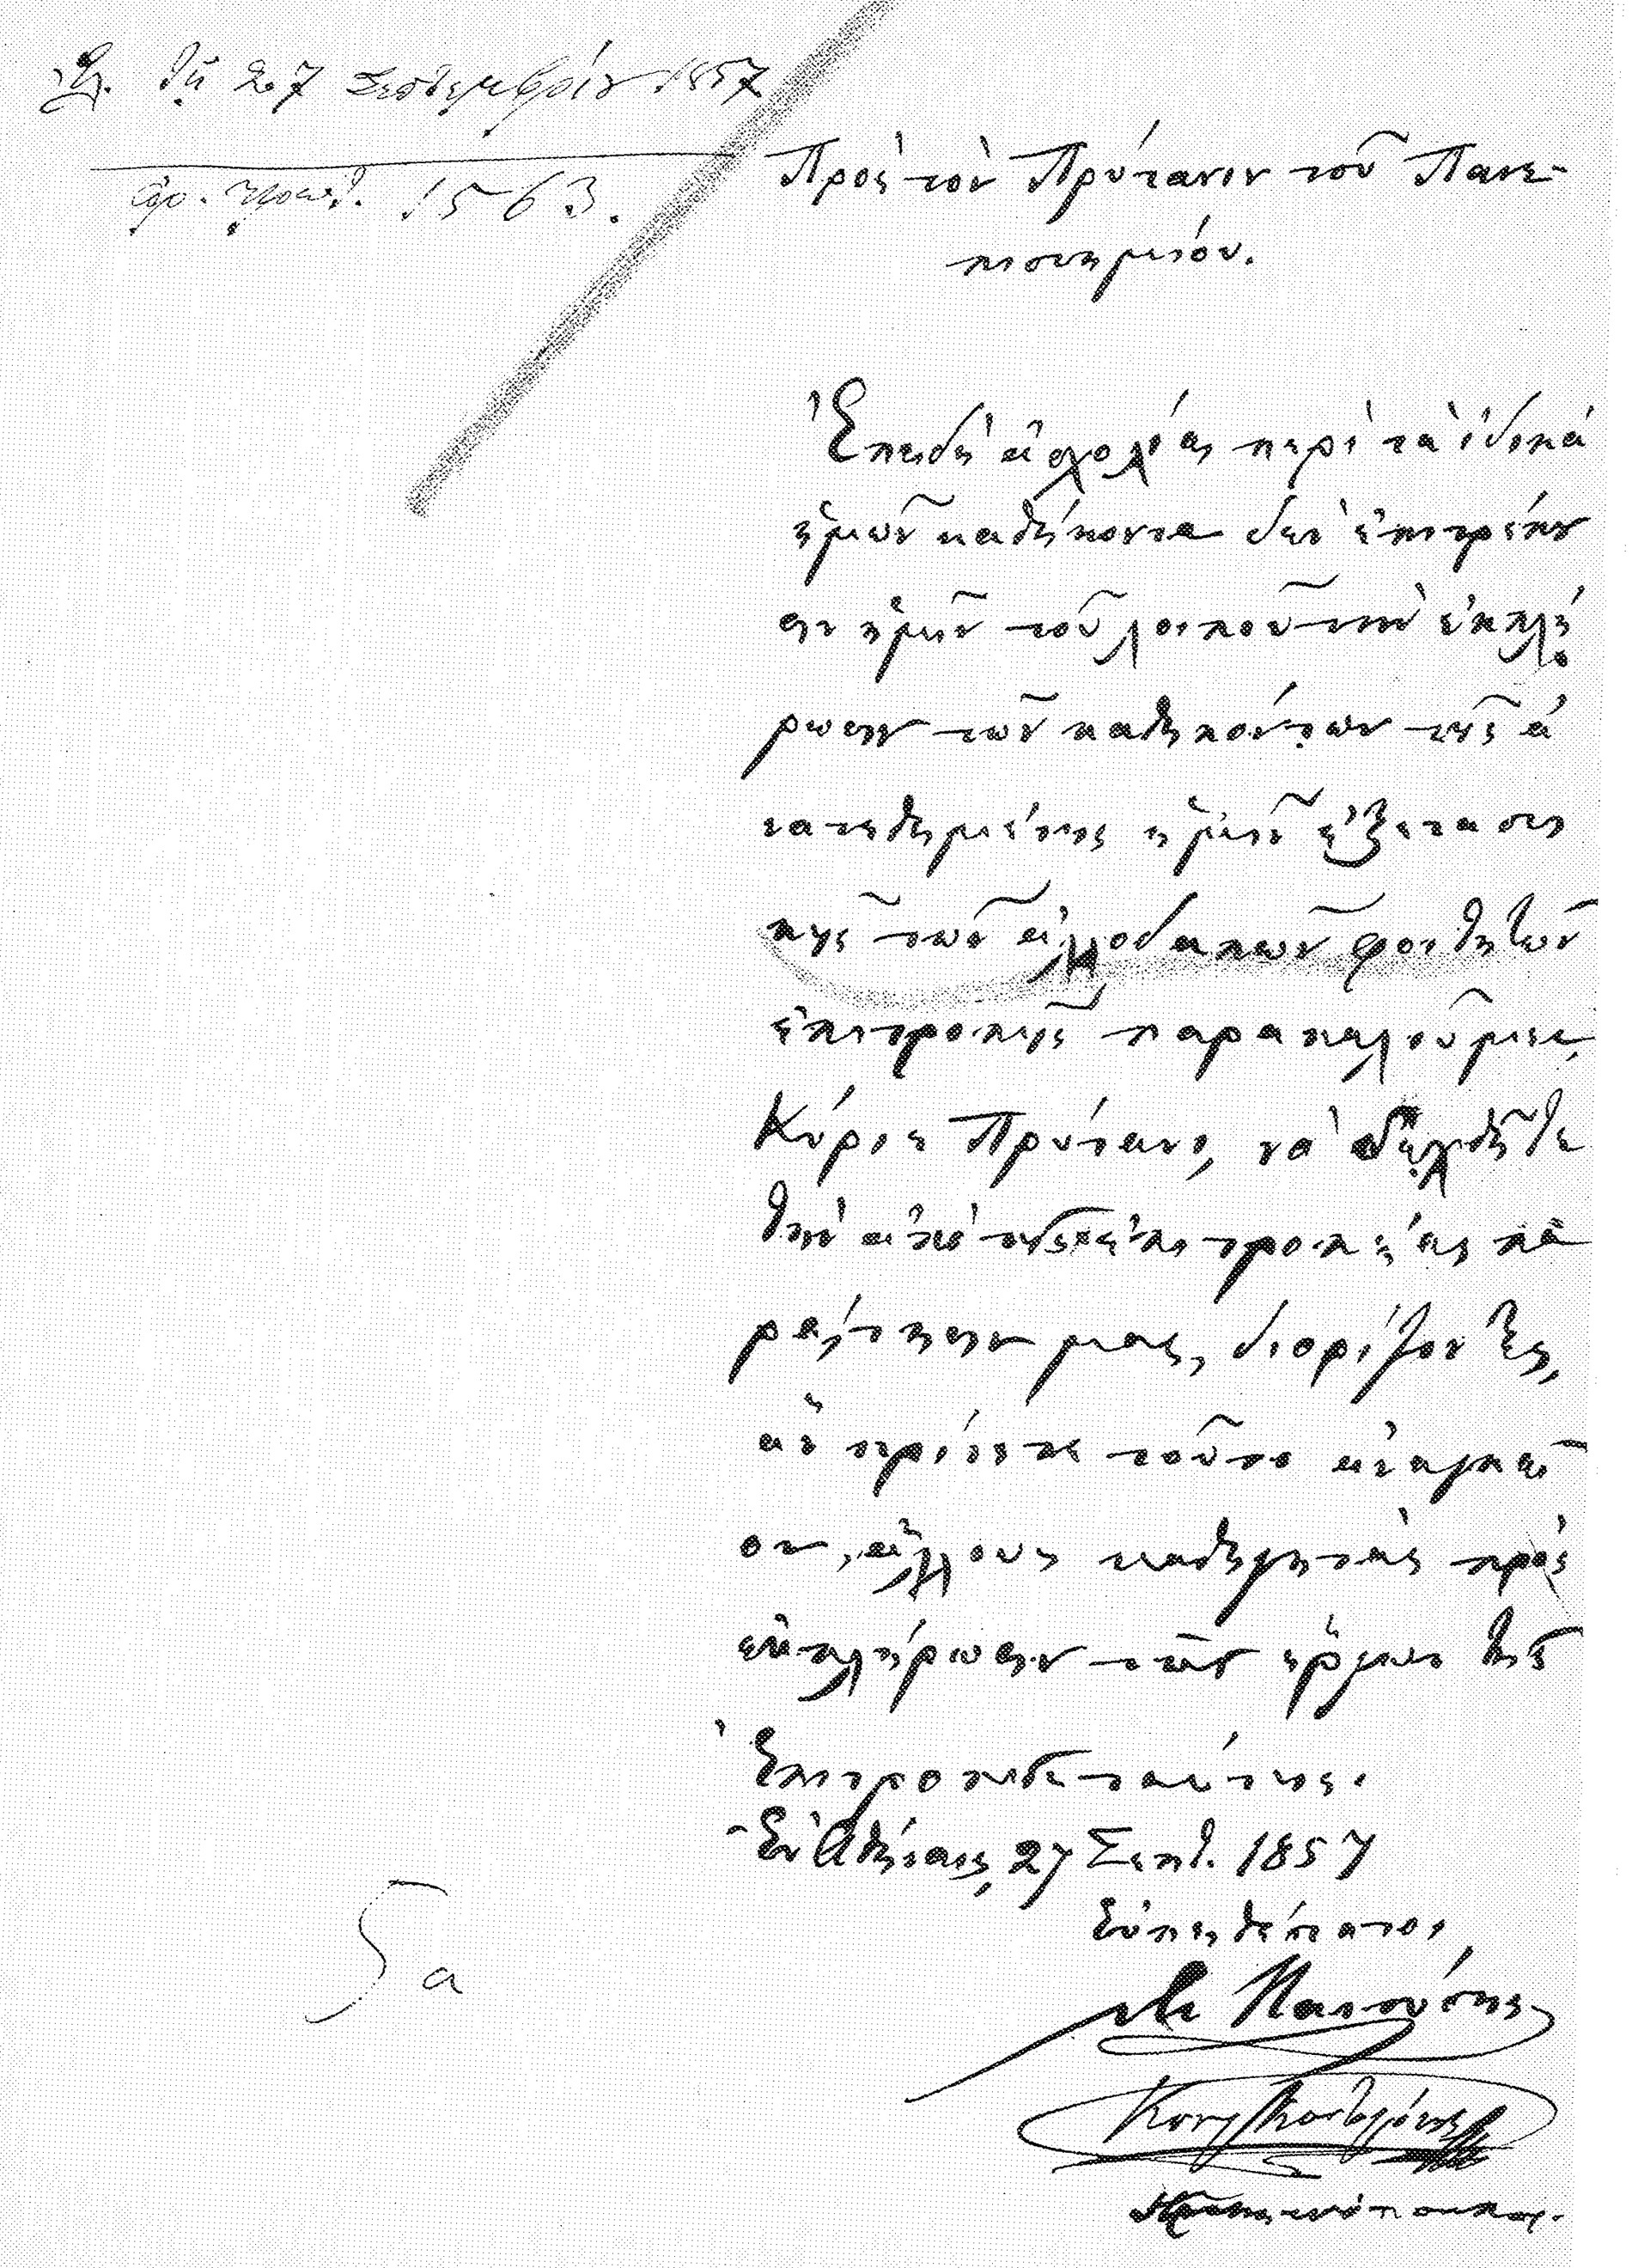 τῇ 27 Σεπτεμβρίου 1857
ἀρ. πρωτ. 1563.
Πρὸς τὸν Πρύτανιν τοῦ Πανε-
πιστημείου.
Ἐπειδὴ ἀσχολίαι περὶ τὰ ἰδικά
ἡμῶν καθήκοντα δὲν ἐπιτρέπου
σιν ἡμῖν τοῦ λοιποῦ τὴν ἐκπλή
ρωσιν τῶν καθηκόντων τῆς ἀ
νατεθειμένης ἡμῖν ἐξεταστι
κῆς τῶν ἀλλοδαπῶν φοιτητῶν
ἐπιτροπῆς παρακαλοῦμεν,
Κύριε Πρύτανι, νὰ δεχθῆτε
τὴν ἀπὸ τῆς ἐπιτροπείας πα
ραίτησιν μας, διορίζοντες,
ἂν κρίνητε τοῦτο ἀναγκαῖ
ον, ἄλλους καθηγητὰς πρὸς
ἐκπλήρωσιν τῶν ἔργων τῆς
Ἐπιτροπῆς ταύτης.
Ἐν Ἀθήναις, 27 Σεπτ. 1857
Εὐπειθέστατοι
5 α